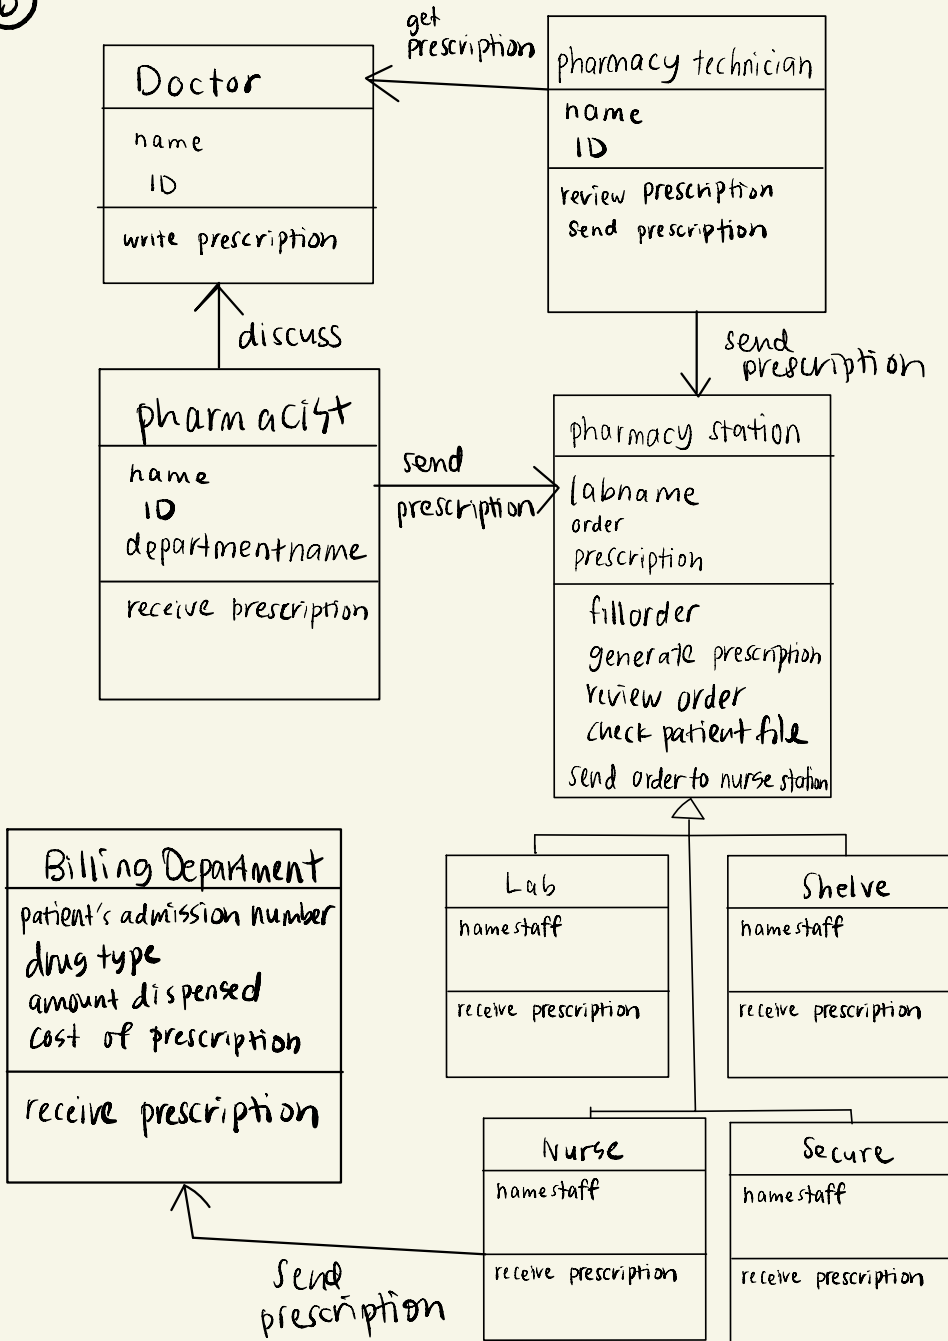 b
get
prescription
Doctor
name
ID
write prescription
pharmacy technician
name
ID
review prescription
send prescription
discuss
send
prescription
pharmacist
name
ID
departmentname
receive prescription
send
prescription
pharmacy station
labname
order
prescription
fillorder
generate prescription
review order
check patient file
send order to nurse station
Billing Department
patient's admission number
drug type
amount dispensed
cost of prescription
receive prescription
Lab
namestaff
receive prescription
Shelve
namestaff
receive prescription
Nurse
namestaff
receive prescription
Secure
namestaff
receive prescription
send
prescription